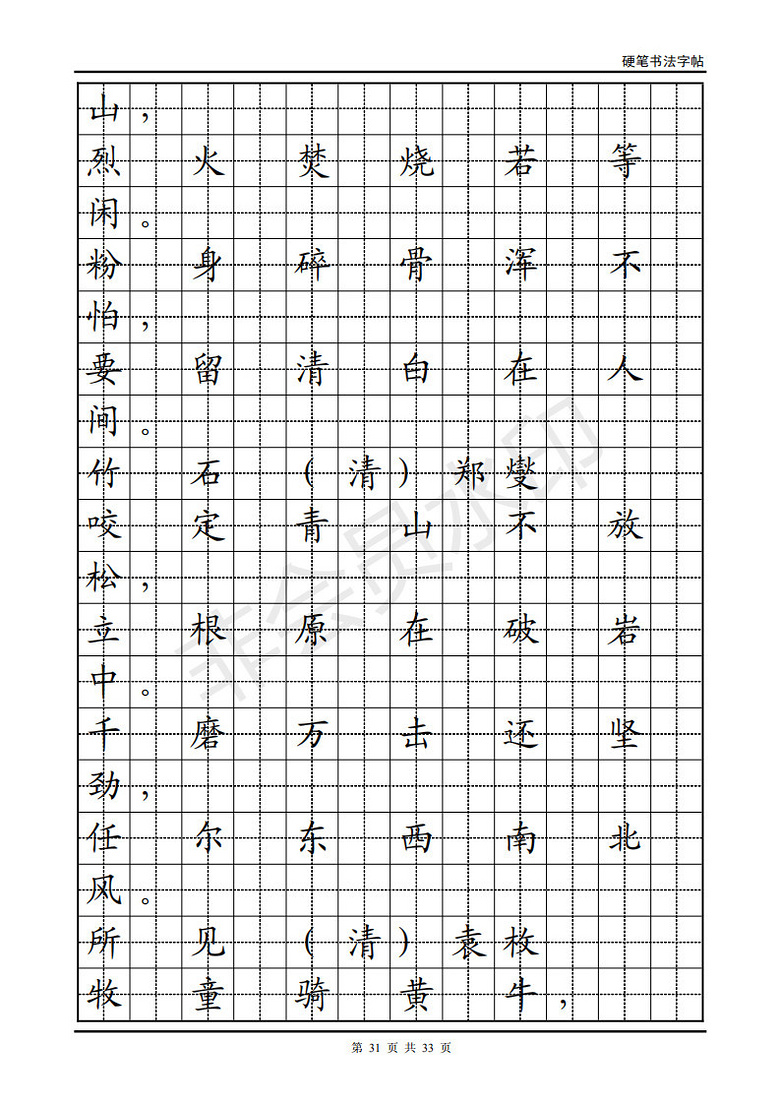 硬笔书法字帖
山，
烈火焚烧若等
闲。
粉身碎骨浑不
怕，
要留清白在人
间。
竹石（清）郑燮
咬定青山不放
松，
立根原在破岩
中。
千磨万击还坚
劲，
任尔东西南北
风。
所见（清）袁枚
牧童骑黄牛，
非会员水印
第 31 页 共 33 页